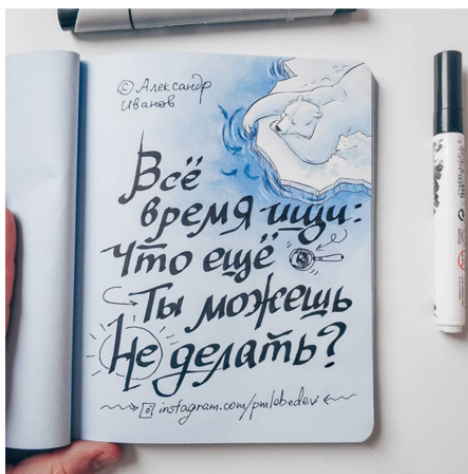 © Александр
Иванов
Всё
время ищи:
Что ещё
Ты можешь
Не делать?
instagram.com/pmlebedev